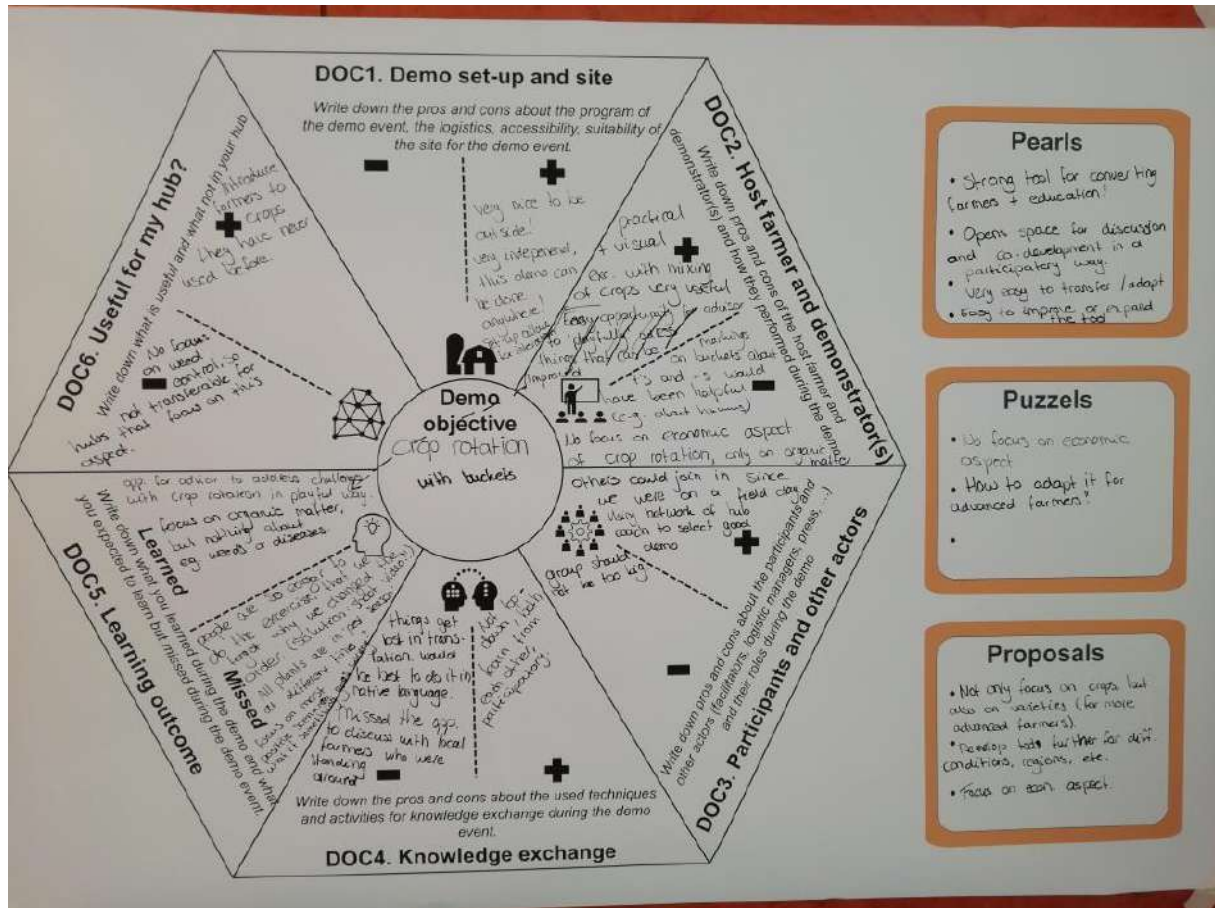 DOC1. Demo set-up and site
Write down the pros and cons about the program of
the demo event, the logistics, accessibility, suitability of
the site for the demo event.
Very nice to be
outside!
very independend,
this demo can
be done
anywhere!
DOC2. Host farmer and demonstrator(s)
Write down pros and cons of the host farmer and
demonstrator(s) and how they performed during the demo
practical
+ visual
exr. with mixing
of crops very useful
Things that can be
improved
markings
on buckets about
+'s and -s would
have been helpful
(e.g. about humus)
No focus on economic aspect
of crop rotation, only on organic
matter
DOC3. Participants and other actors
Write down pros and cons about the participants and
other actors (facilitators, logistic managers, press, ...)
and their roles during the demo
others could join in since
we were on a field day
Using network of hub
coach to select good
demo
group should
not be too big
DOC4. Knowledge exchange
Write down the pros and cons about the used techniques
and activities for knowledge exchange during the demo
event.
things get
lost in trans-
lation. would
be best to do it in
native language.
Missed the opp.
to discuss with local
farmers who were
standing
around
Not top-
down, both
learn from
each other,
participatory.
DOC5. Learning outcome
Write down what you learned during the demo and what
you expected to learn but missed during the demo event.
Learned
opp. for advisor to address challenges
with crop rotation in playful way.
focus on organic matter,
but nothing about
eg weeds or diseases.
Missed
people are so eager to
do the exercise, that we
forgot why we changed the
order (solution: short
video?)
All plants are in yet
at different time
DOC6. Useful for my hub?
Write down what is useful and what not in your hub
Introduce
farmers to
crops
they have never
used before.
No focus
on weed
control, so
not transferable for
hubs that focus on this
aspect.
Demo
objective
crop rotation
with buckets
Pearls
• Strong tool for converting
farmers + education!
• Opens space for discussion
and co-development in a
participatory way.
• Very easy to transfer / adapt
• Easy to improve or expand
the tool
Puzzels
• No focus on economic
aspect
• How to adapt it for
advanced farmers?
•
Proposals
• Not only focus on crops, but
also on varieties (for more
advanced farmers).
• Develop tools further for diff.
conditions, regions, etc.
• Focus on econ. aspect.